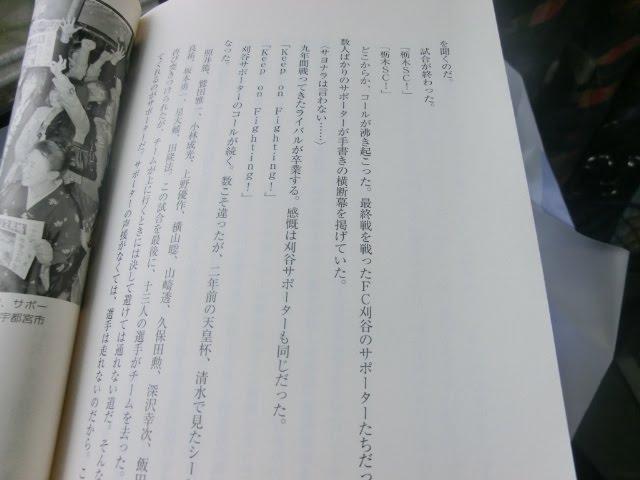 を聞くのだ。
試合が終わった。
「栃木SC！」
「栃木SC！」
どこからか、コールが沸き起こった。最終戦を戦ったFC刈谷のサポーターたちだっ
数人ばかりのサポーターが手書きの横断幕を掲げていた。
〈サヨナラは言わない……〉
九年間戦ってきたライバルが卒業する。感慨は刈谷サポーターも同じだった。
「Keep on Fighting！」
「Keep on Fighting！」
刈谷サポーターのコールが続く。数こそ違ったが、二年前の天皇杯、清水で見たシー
なった。
照井篤、鷲田雅一、小林成光、上野優作、横山聡、山崎透、久保田勲、深沢幸次、飯田
この試合を最後に、十三人の選手がチームを去った。
チームが上に行くときには決して避けては通れない道だ。そんな
てくれるのがサポーターだ。サポーターの声援がなくては、選手は走れないのだから。こ
サポー
宇都宮市